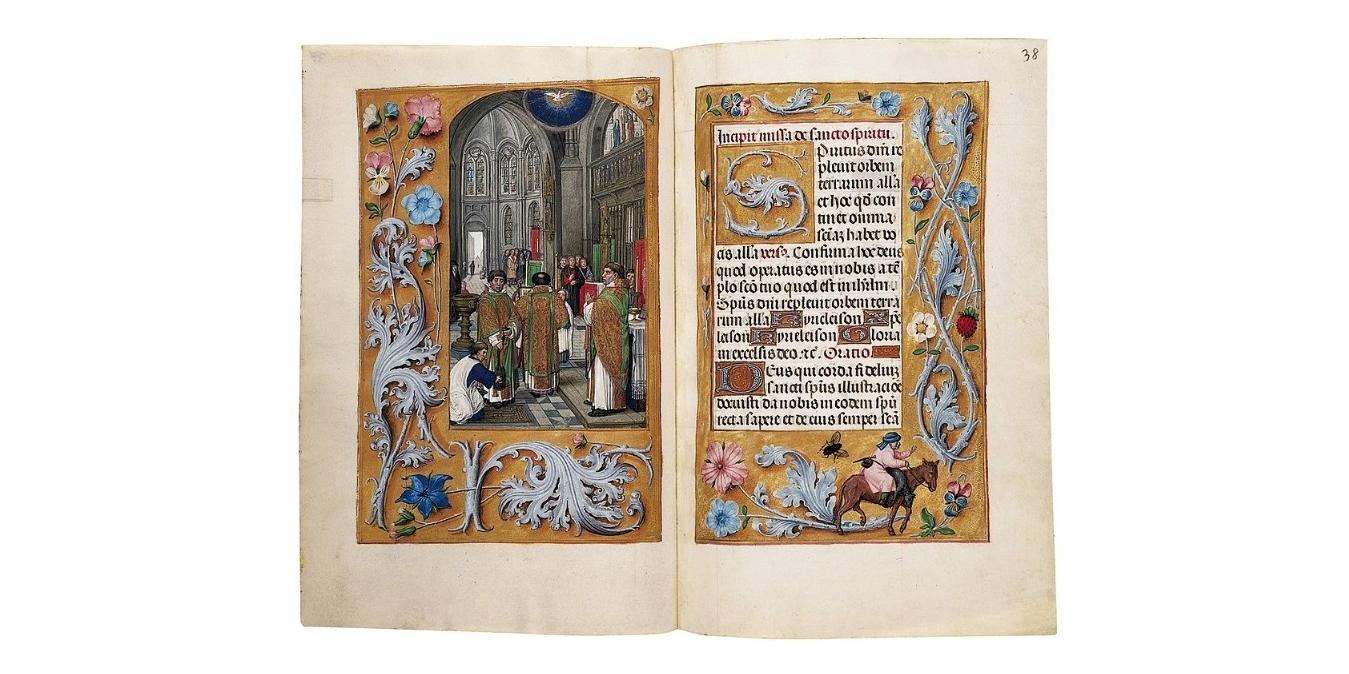 38
Incipit missa de sancto spiritu.
Spiritus dñi re
pleuit orbem
terrarum alla
et hoc qd con
tinet omnia
scã habet vo
cis alla vers. Confirma hoc deus
quod operatus es in nobis a tẽ
plo scõ tuo quod est in ihrlm.
Spũs dñi repleuit orbem terra
rum alla Kyrieleison Xp̃e
leison Kyrieleison Gloria
in excelsis deo. Oratio
Deus qui corda fideliũ
sancti spũs illustracõe
docuisti da nobis in eodem spũ
recta sapere et de eius semper scã